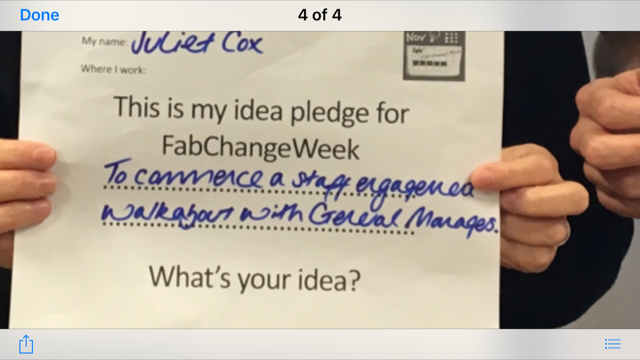 Done
4 of 4
My name: Juliet Cox
Nov
Where I work:
This is my idea pledge for
FabChangeWeek
To commence a staff engagemen
walkabout with General Manages.
What's your idea?